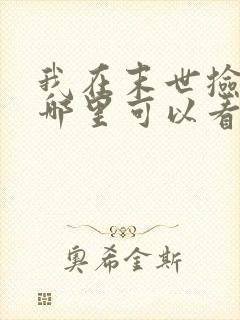 我在末世捡
哪里可以看
奥希金斯